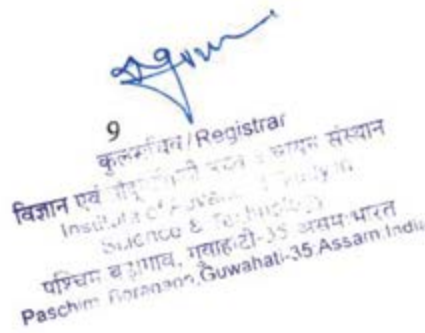 9
कुलसचिव / Registrar
विज्ञान एवं संस्थान
Institute of Study in
Science & Technology
पश्चिम बड़ागांव, गुवाहाटी-35 असम-भारत
Paschim Boragaon, Guwahati-35 Assam India